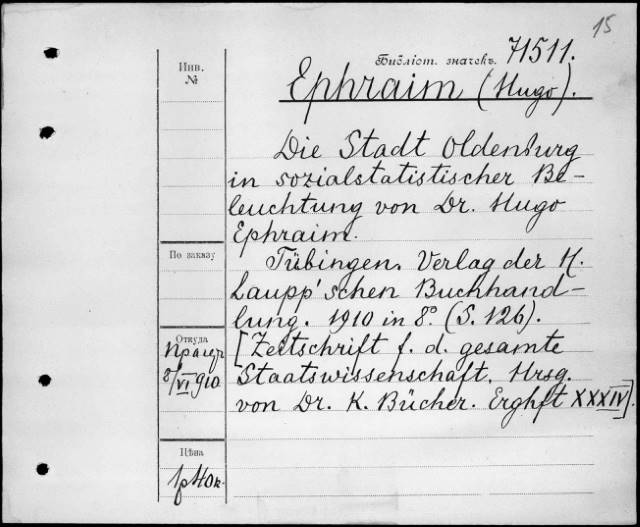 15
Библіот. значекъ. 71511.
Инв.
№
Ephraim (Hugo).
Die Stadt Oldenburg
in sozialstatistischer Be-
leuchtung von Dr. Hugo
Ephraim.
По заказу
Tübingen. Verlag der H.
Laupp'schen Buchhand-
lung. 1910 in 8º. (S. 126).
Откуда
8/VI 910
[Zeitschrift f. d. gesamte
Staatswissenschaft. Hrsg.
von Dr. K. Bücher. Erghft XXXIV].
Цѣна
1 р 40 к.